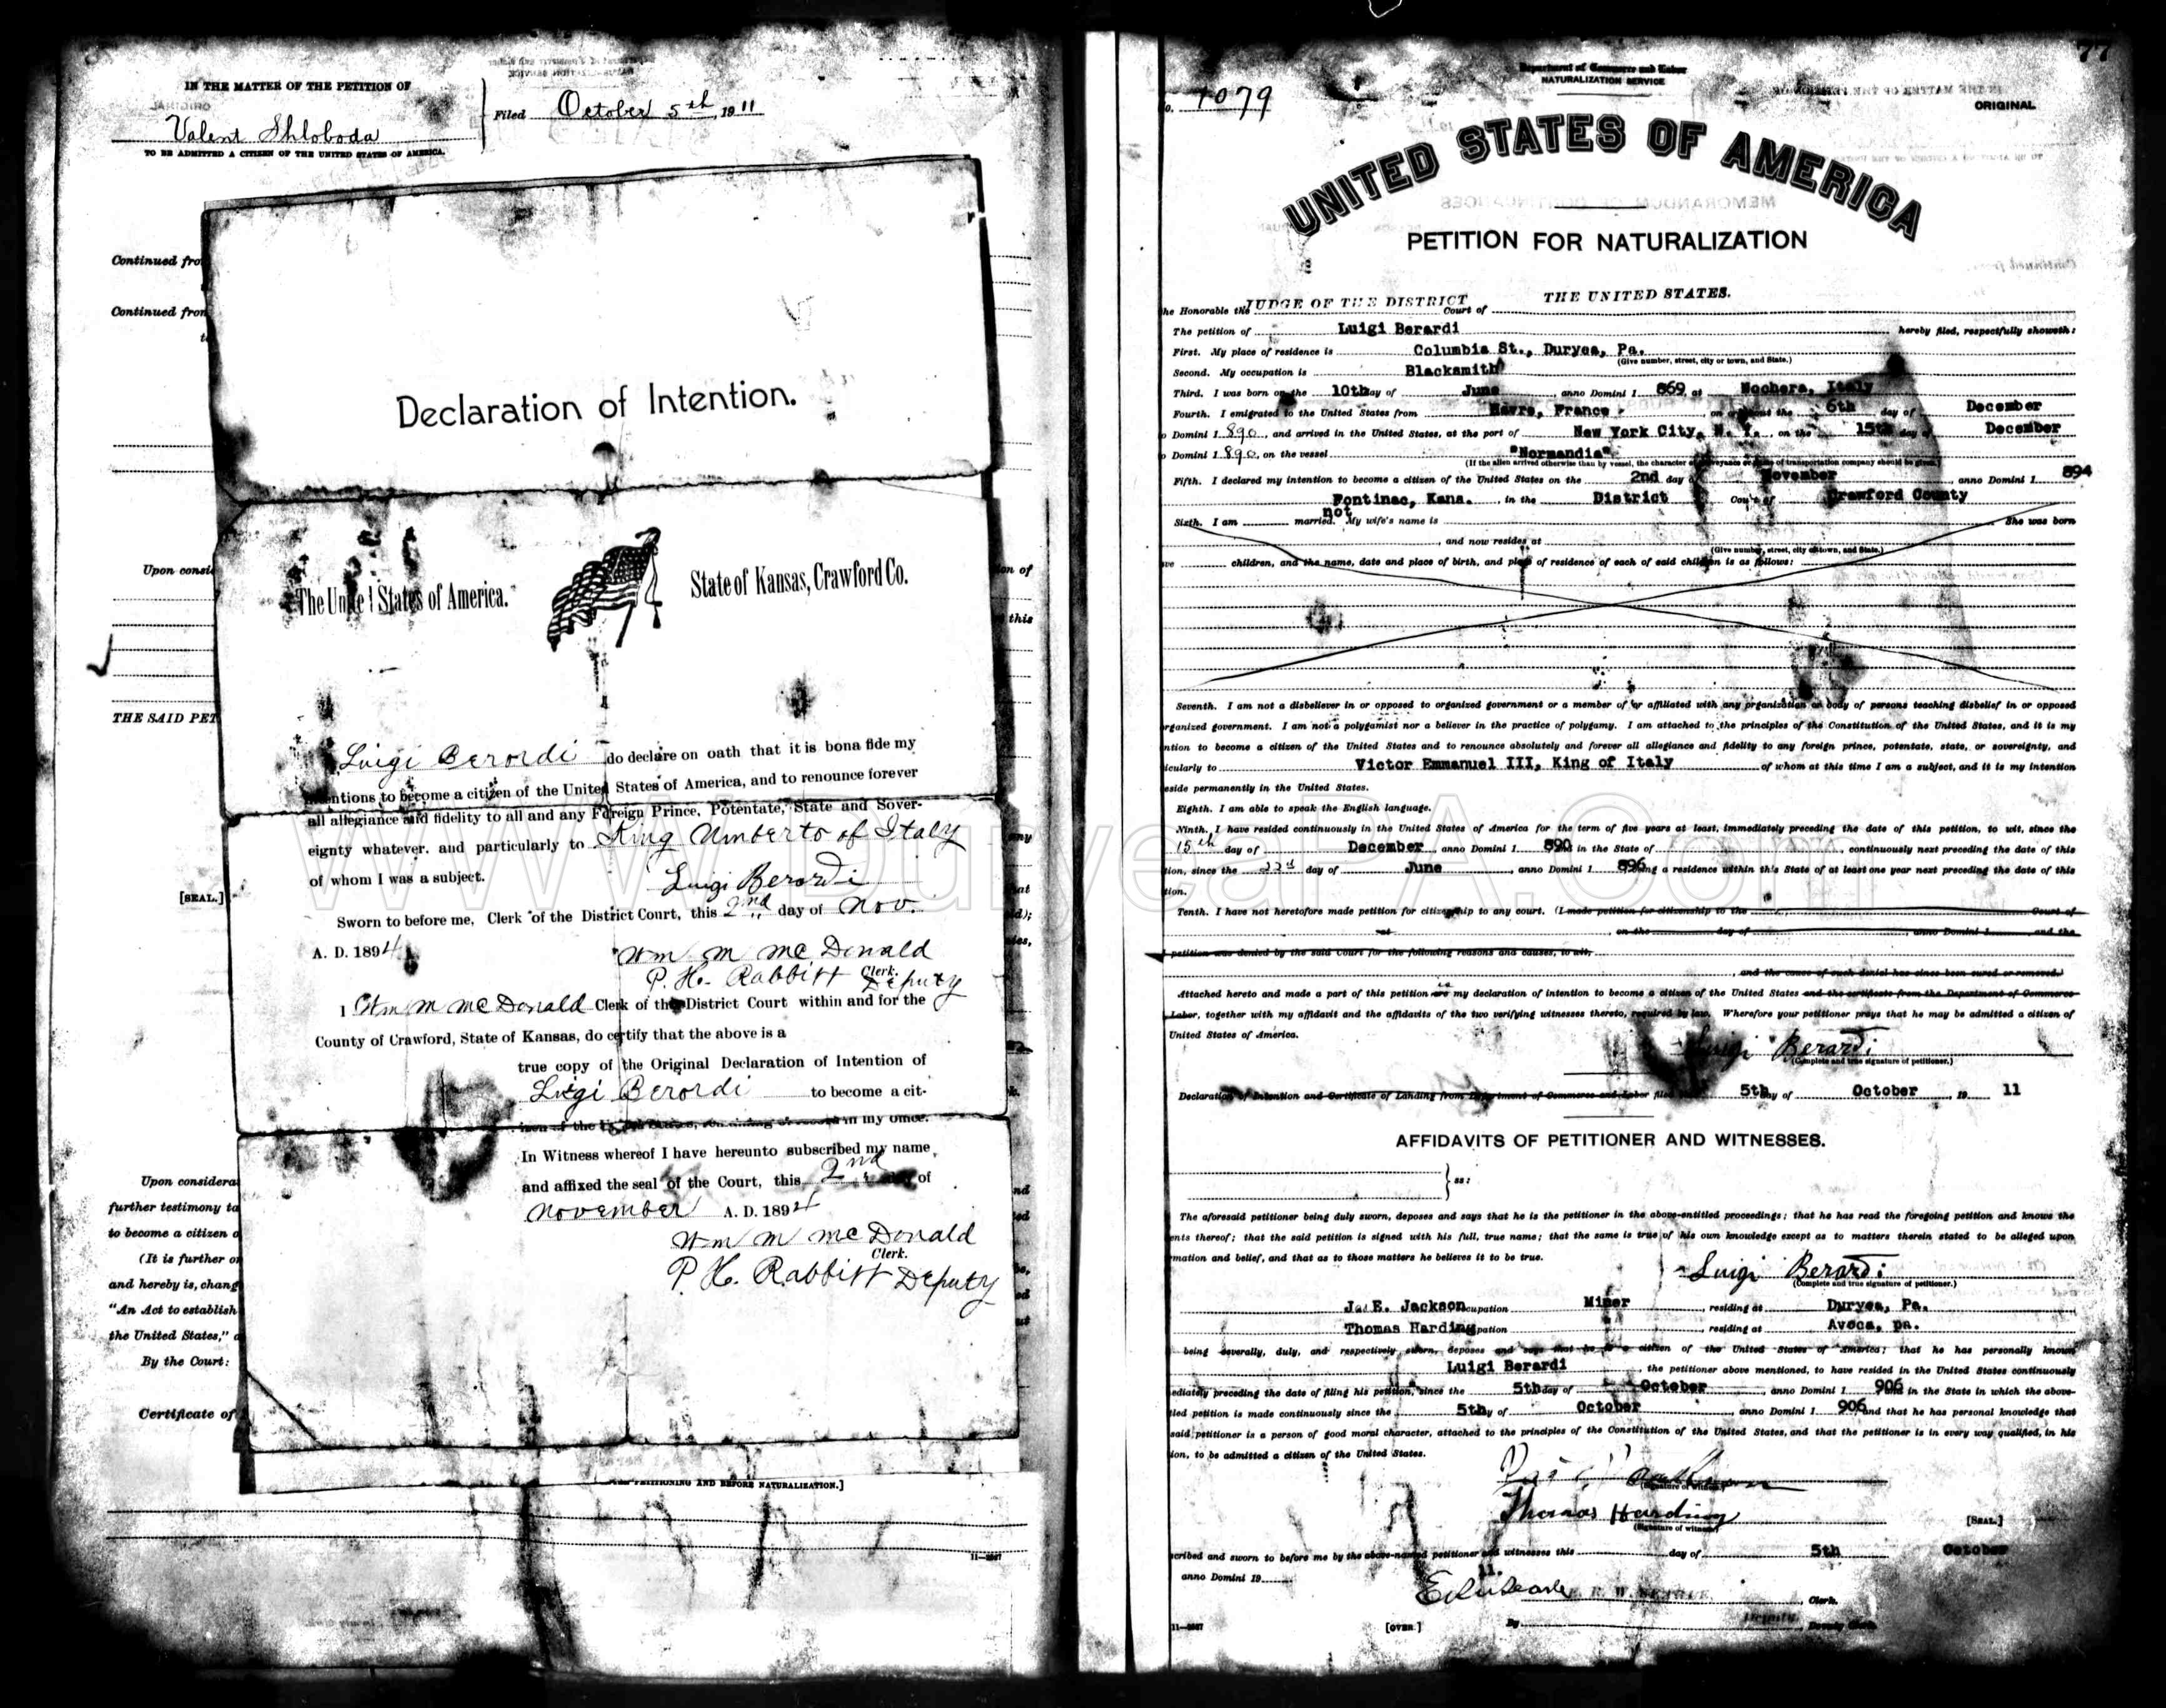 IN THE MATTER OF THE PETITION OF
Valent Shloboda
TO BE ADMITTED A CITIZEN OF THE UNITED STATES OF AMERICA.
Filed October 5th, 1911
Continued fro
Continued from
Declaration of Intention.
The United States of America.
State of Kansas, Crawford Co.
Upon consi
on of
this
THE SAID PET
Luigi Berordi do declare on oath that it is bona fide my
intentions to become a citizen of the United States of America, and to renounce forever
all allegiance and fidelity to all and any Foreign Prince, Potentate, State and Sover-
eignty whatever, and particularly to King Umberto of Italy
of whom I was a subject.
Luigi Berardi
[SEAL.]
Sworn to before me, Clerk of the District Court, this 2nd day of Nov.
A. D. 1894
Wm M McDonald
Clerk.
P. H. Rabbitt Deputy
I Wm M McDonald Clerk of the District Court within and for the
County of Crawford, State of Kansas, do certify that the above is a
true copy of the Original Declaration of Intention of
Luigi Berordi to become a cit-
in my office.
In Witness whereof I have hereunto subscribed my name,
and affixed the seal of the Court, this 2nd day of
November A. D. 1894
Wm M McDonald
Clerk.
P. H. Rabbitt Deputy
Upon considera
further testimony ta
to become a citizen o
(It is further or
and hereby is, chang
"An Act to establish
the United States," a
By the Court:
Certificate of
PETITIONING AND BEFORE NATURALIZATION.]
11—2567
77
Department of Commerce and Labor
NATURALIZATION SERVICE
o. 1079
ORIGINAL
UNITED STATES OF AMERICA
PETITION FOR NATURALIZATION
he Honorable the JUDGE OF THE DISTRICT Court of THE UNITED STATES.
The petition of Luigi Berardi hereby filed, respectfully showeth:
First. My place of residence is Columbia St., Duryea, Pa.
(Give number, street, city or town, and State.)
Second. My occupation is Blacksmith
Third. I was born on the 10th day of June, anno Domini 1 869, at Nochera, Italy
Fourth. I emigrated to the United States from Havre, France on or about the 6th day of December
o Domini 1 890, and arrived in the United States, at the port of New York City, N. Y., on the 15th day of December
o Domini 1 890, on the vessel "Normandia"
(If the alien arrived otherwise than by vessel, the character of conveyance or name of transportation company should be given.)
Fifth. I declared my intention to become a citizen of the United States on the 2nd day of November anno Domini 1 894
Pontinac, Kans. in the District Court of Crawford County
Sixth. I am not married. My wife's name is She was born
, and now resides at
(Give number, street, city or town, and State.)
ve children, and the name, date and place of birth, and place of residence of each of said children is as follows:
Seventh. I am not a disbeliever in or opposed to organized government or a member of or affiliated with any organization or body of persons teaching disbelief in or opposed
rganized government. I am not a polygamist nor a believer in the practice of polygamy. I am attached to the principles of the Constitution of the United States, and it is my
ntion to become a citizen of the United States and to renounce absolutely and forever all allegiance and fidelity to any foreign prince, potentate, state, or sovereignty, and
icularly to Victor Emmanuel III, King of Italy of whom at this time I am a subject, and it is my intention
eside permanently in the United States.
Eighth. I am able to speak the English language.
Ninth. I have resided continuously in the United States of America for the term of five years at least, immediately preceding the date of this petition, to wit, since the
15th day of December, anno Domini 1 890 in the State of , continuously next preceding the date of this
tion, since the 22d day of June, anno Domini 1 896 being a residence within this State of at least one year next preceding the date of this
tion.
Tenth. I have not heretofore made petition for citizenship to any court. (I made petition for citizenship to the Court of
at , on the day of , anno Domini 1 and the
petition was denied by the said Court for the following reasons and causes, to wit,
, and the cause of such denial has since been cured or removed.)
Attached hereto and made a part of this petition are is my declaration of intention to become a citizen of the United States and the certificate from the Department of Commerce
Labor, together with my affidavit and the affidavits of the two verifying witnesses thereto, required by law. Wherefore your petitioner prays that he may be admitted a citizen of
United States of America.
Luigi Berardi
(Complete and true signature of petitioner.)
Declaration of Intention and Certificate of Landing from Department of Commerce and Labor filed 5th day of October, 19 11
AFFIDAVITS OF PETITIONER AND WITNESSES.
ss:
The aforesaid petitioner being duly sworn, deposes and says that he is the petitioner in the above-entitled proceedings; that he has read the foregoing petition and knows the
ents thereof; that the said petition is signed with his full, true name; that the same is true of his own knowledge except as to matters therein stated to be alleged upon
rmation and belief, and that as to those matters he believes it to be true.
Luigi Berardi
(Complete and true signature of petitioner.)
J. E. Jackson cupation Miner, residing at Duryea, Pa.
Thomas Harding pation , residing at Avoca, pa.
being severally, duly, and respectively sworn, deposes and says that he is a citizen of the United States of America; that he has personally known
Luigi Berardi, the petitioner above mentioned, to have resided in the United States continuously
ediately preceding the date of filing his petition, since the 5th day of October, anno Domini 1 906 in the State in which the above-
tled petition is made continuously since the 5th y of October, anno Domini 1 906 and that he has personal knowledge that
said petitioner is a person of good moral character, attached to the principles of the Constitution of the United States, and that the petitioner is in every way qualified, in his
ion, to be admitted a citizen of the United States.
(Signature of witness)
Thomas Harding
(Signature of witness)
[SEAL.]
cribed and sworn to before me by the above-named petitioner and witnesses this day of 5th October
anno Domini 19 11.
E. R. W. SEARLE, Clerk.
11—2567
[OVER.]
By Deputy, Deputy Clerk.
WWW.DuryeaPA.Com